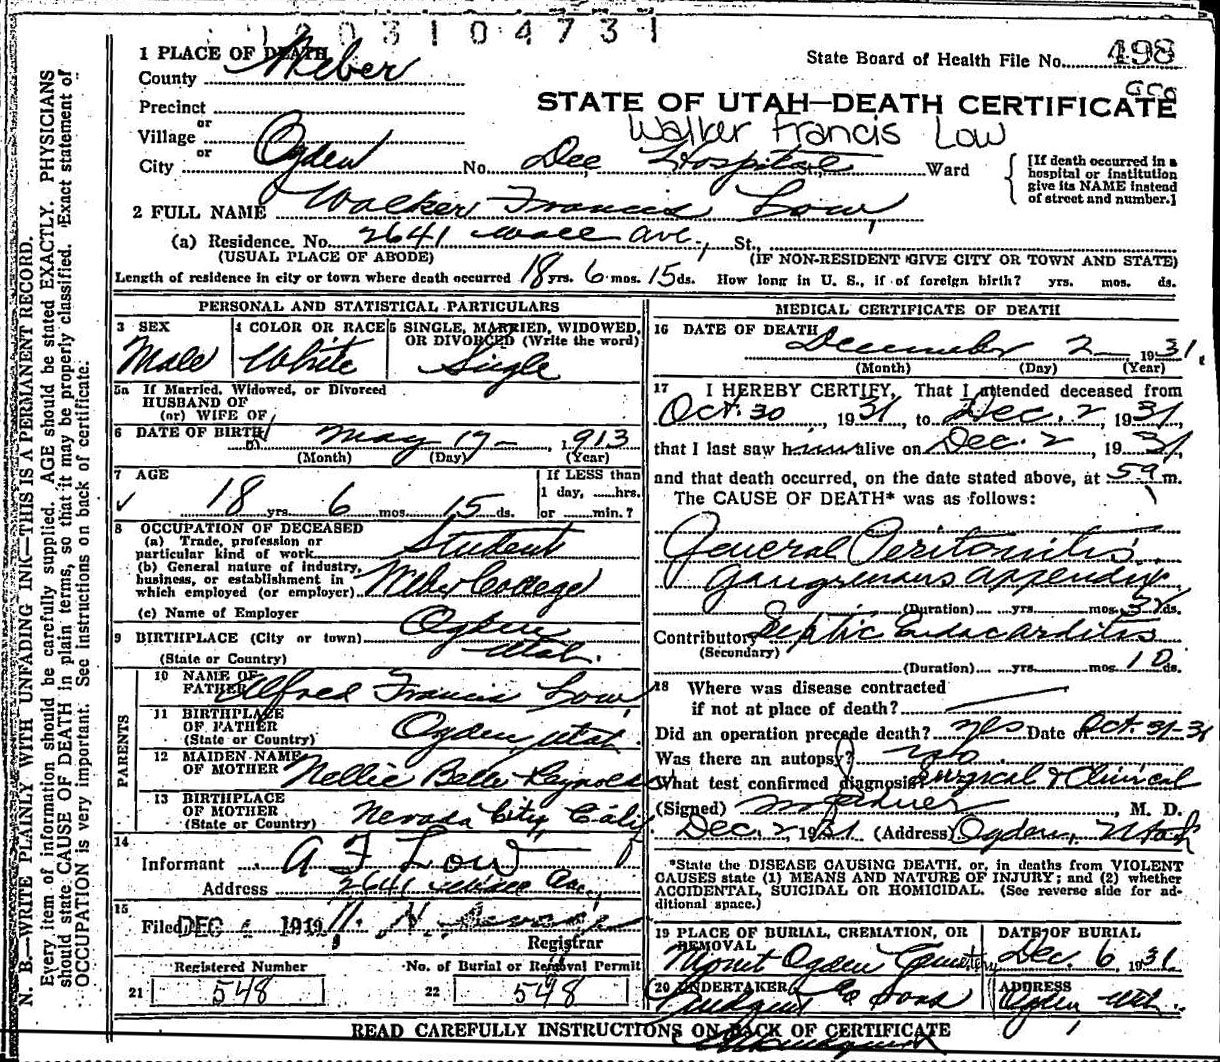 1203104731
1 PLACE OF DEATH
County Weber
State Board of Health File No. 498
Precinct
or
STATE OF UTAH—DEATH CERTIFICATE
Village
Walker Francis Low
or
City Ogden No. Dee Hospital St., Ward
[If death occurred in a hospital or institution give its NAME instead of street and number.]
2 FULL NAME Walker Francis Low
(a) Residence. No. 2641 Wall Ave., St.,
(USUAL PLACE OF ABODE) (IF NON-RESIDENT GIVE CITY OR TOWN AND STATE)
Length of residence in city or town where death occurred 18 yrs. 6 mos. 15 ds. How long in U. S., if of foreign birth? yrs. mos. ds.
PERSONAL AND STATISTICAL PARTICULARS
3 SEX Male
4 COLOR OR RACE White
5 SINGLE, MARRIED, WIDOWED, OR DIVORCED (Write the word) Single
5a If Married, Widowed, or Divorced
HUSBAND OF
(or) WIFE OF
6 DATE OF BIRTH May 17- 1913
(Month) (Day) (Year)
7 AGE
18 yrs. 6 mos. 15 ds.
If LESS than
1 day, ......hrs.
or ......min.?
8 OCCUPATION OF DECEASED
(a) Trade, profession or
particular kind of work Student
(b) General nature of industry,
business, or establishment in
which employed (or employer) Weber College
(c) Name of Employer
9 BIRTHPLACE (City or town) Ogden
(State or Country) Utah.
PARENTS
10 NAME OF
FATHER Alfred Francis Low
11 BIRTHPLACE
OF FATHER
(State or Country) Ogden, Utah.
12 MAIDEN NAME
OF MOTHER Nellie Belle Reynolds
13 BIRTHPLACE
OF MOTHER
(State or Country) Nevada City, Calif
14
Informant A F Low
Address 2641 Ave.,
15
Filed DEC 1919
Registrar
Registered Number
21 548
No. of Burial or Removal Permit
22 548
MEDICAL CERTIFICATE OF DEATH
16 DATE OF DEATH
December 2- 1931.
(Month) (Day) (Year)
17 I HEREBY CERTIFY, That I attended deceased from
Oct. 30, 1931, to Dec. 2 1931,
that I last saw him alive on Dec. 2, 1931,
and that death occurred, on the date stated above, at 59 m.
The CAUSE OF DEATH* was as follows:
General Peritonitis
Gangrenous appendix
(Duration) yrs. mos. ds.
Contributory Septic Endocarditis
(Secondary)
(Duration) yrs. mos. 10 ds.
18 Where was disease contracted
if not at place of death?
Did an operation precede death? yes Date of Oct. 31-31
Was there an autopsy? no
What test confirmed diagnosis? Surgical & Clinical
(Signed) M. D.
Dec. 2 1931 (Address) Ogden, Utah
*State the DISEASE CAUSING DEATH, or, in deaths from VIOLENT
CAUSES state (1) MEANS AND NATURE OF INJURY; and (2) whether
ACCIDENTAL, SUICIDAL OR HOMICIDAL. (See reverse side for ad-
ditional space.)
19 PLACE OF BURIAL, CREMATION, OR
REMOVAL
Mount Ogden Cemetery
DATE OF BURIAL
Dec. 6 1931.
20 UNDERTAKER
Lindquist & Sons
ADDRESS
Ogden Utah.
READ CAREFULLY INSTRUCTIONS ON BACK OF CERTIFICATE
N. B.—WRITE PLAINLY WITH UNFADING INK—THIS IS A PERMANENT RECORD.
Every item of information should be carefully supplied. AGE should be stated EXACTLY. PHYSICIANS
should state CAUSE OF DEATH in plain terms, so that it may be properly classified. Exact statement of
OCCUPATION is very important. See instructions on back of certificate.